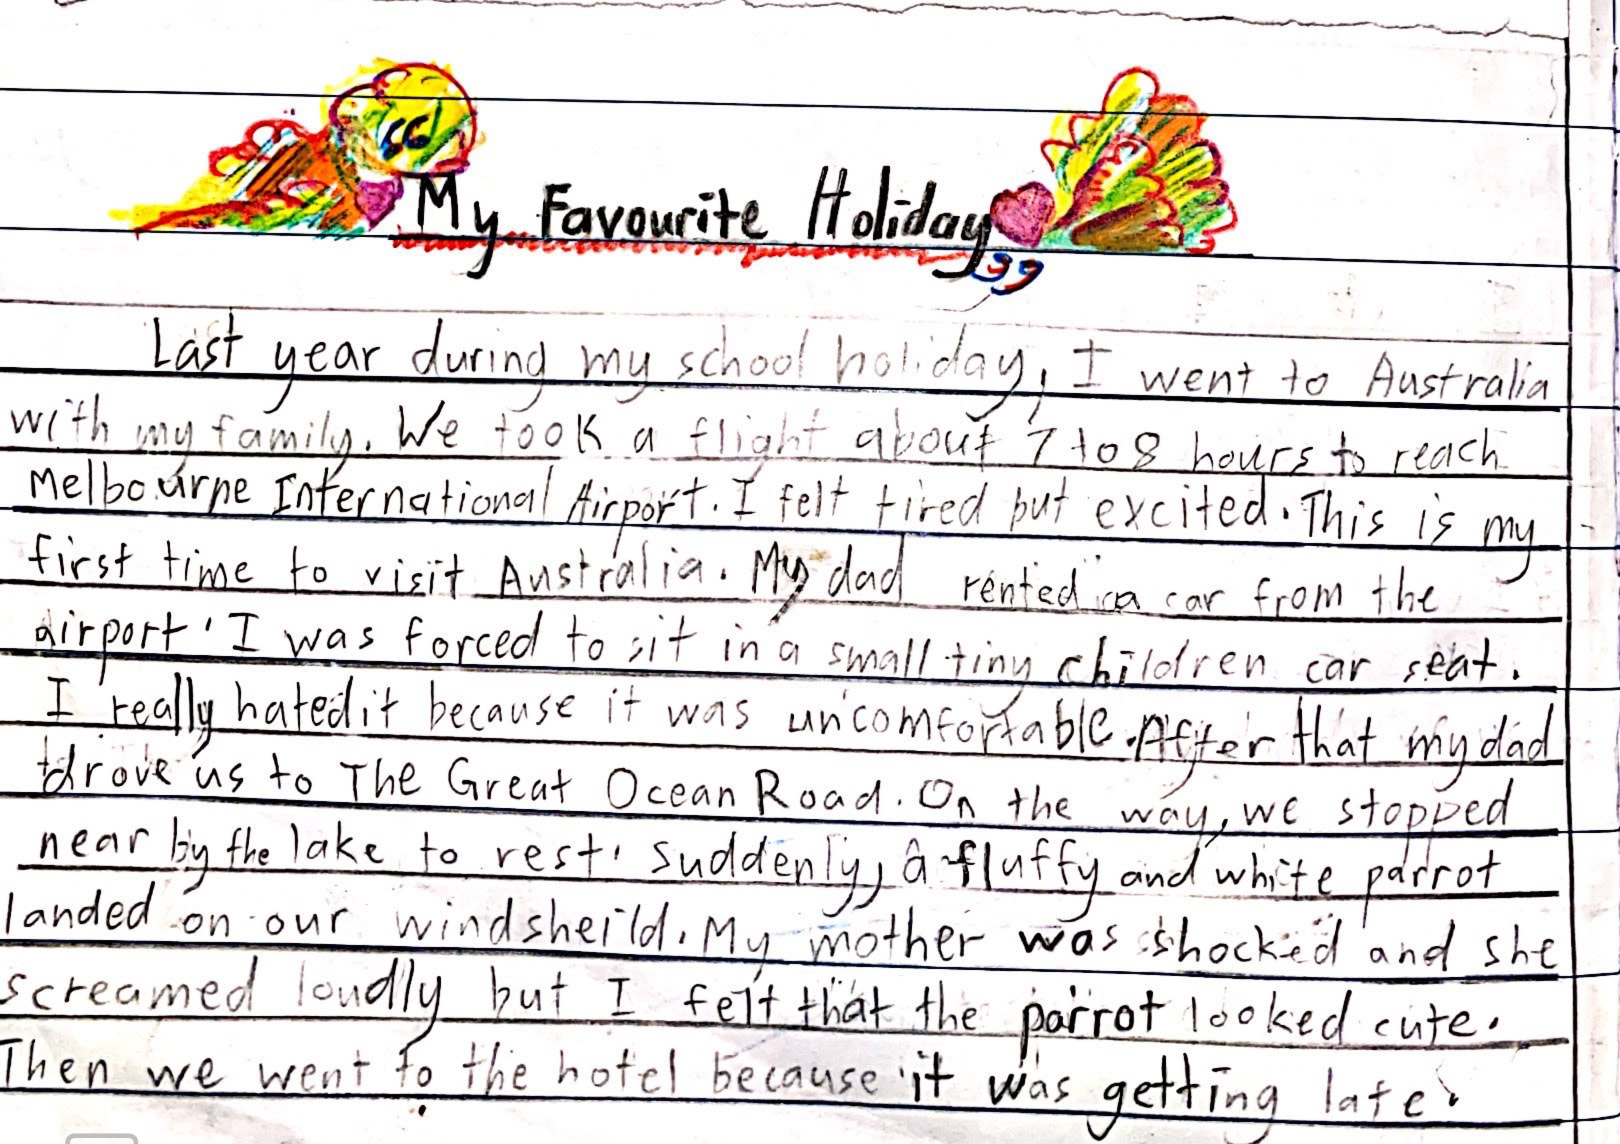 “My Favourite Holiday”
Last year during my school holiday, I went to Australia
with my family. We took a flight about 7 to 8 hours to reach
Melbourne International Airport. I felt tired but excited. This is my
first time to visit Australia. My dad rented a car from the
airport. I was forced to sit in a small tiny children car seat.
I really hated it because it was uncomfortable. After that my dad
drove us to The Great Ocean Road. On the way, we stopped
near by the lake to rest. Suddenly, a fluffy and white parrot
landed on our windsheild. My mother was shocked and she
screamed loudly but I felt that the parrot looked cute.
Then we went to the hotel because it was getting late.